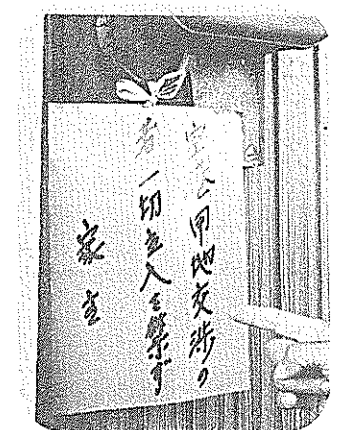 空港用地交渉の
者一切立入を禁ず
家主